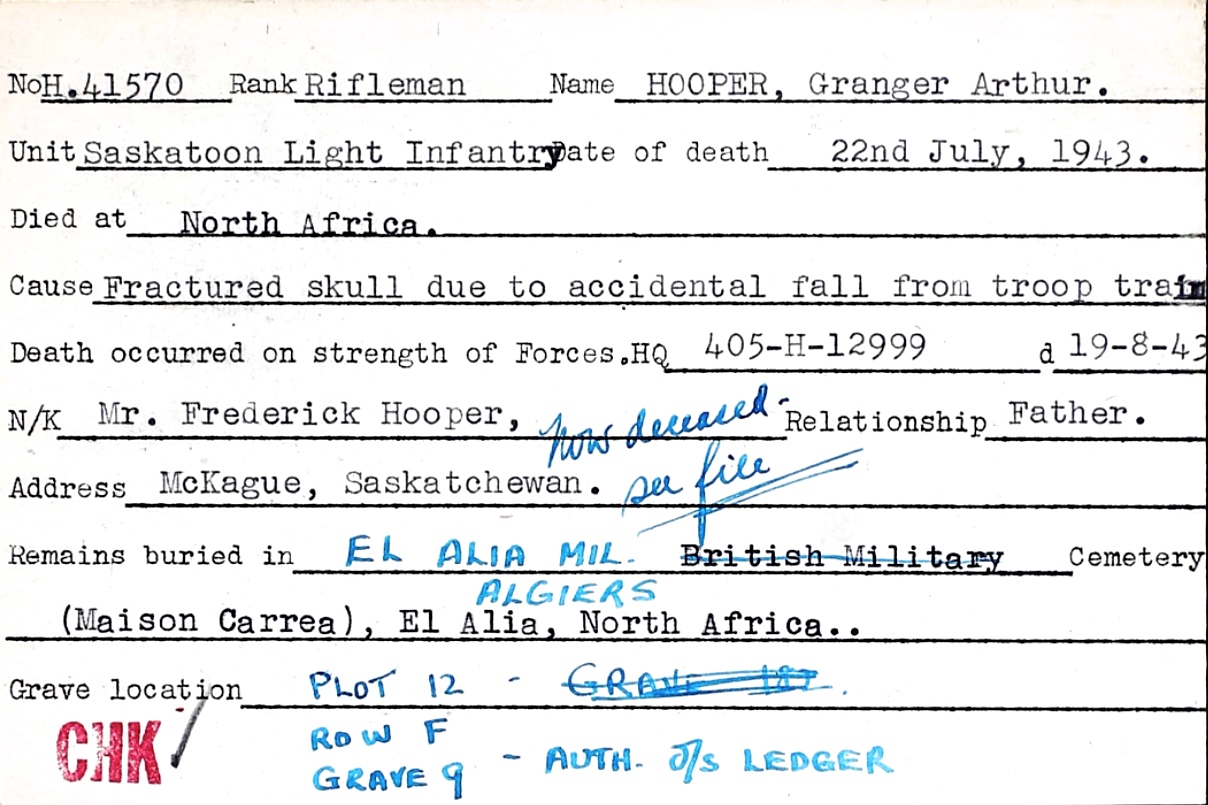 No H.41570 Rank Rifleman Name HOOPER, Granger Arthur.
Unit Saskatoon Light Infantry Date of death 22nd July, 1943.
Died at North Africa.
Cause Fractured skull due to accidental fall from troop train
Death occurred on strength of Forces. HQ 405-H-12999 d 19-8-43
N/K Mr. Frederick Hooper, now deceased - Relationship Father.
Address McKague, Saskatchewan. see file
Remains buried in EL ALIA MIL. British Military Cemetery
ALGIERS
(Maison Carrea), El Alia, North Africa..
Grave location PLOT 12 - GRAVE 187.
CHK
ROW F
GRAVE 9 - AUTH. O/S LEDGER